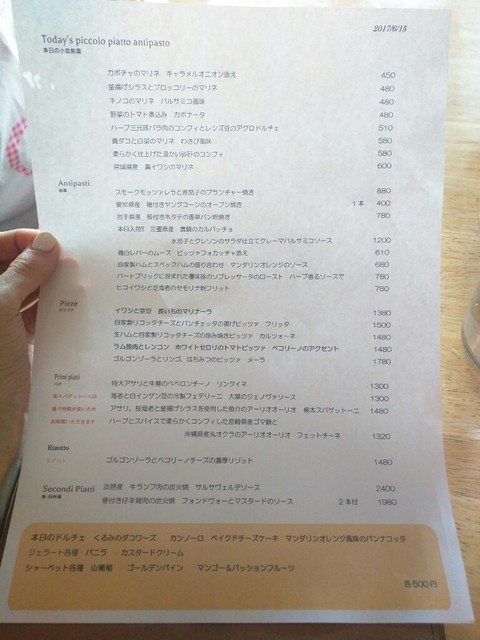 2017/6/15
Today's piccolo piatto antipasto
本日の小皿前菜
カボチャのマリネ キャラメルオニオン添え 450
釜揚げシラスとブロッコリーのマリネ 480
キノコのマリネ バルサミコ風味 480
野菜のトマト煮込み カポナータ 480
ハーブ三元豚バラ肉のコンフィとレンズ豆のアグロドルチェ 510
真ダコと白菜のマリネ わさび風味 580
柔らかく仕上げた温かい砂肝のコンフィ 580
宮城県産 真イワシのマリネ 600
Antipasti
前菜
スモークモッツァレラと赤茄子のプランチャー焼き 880
愛知県産 穂付きヤングコーンのオーブン焼き 1本 400
岩手県産 殻付きホタテの香草パン粉焼き 780
本日入荷!! 三重県産 真鯛のカルパッチョ
水茄子とクレソンのサラダ仕立てクレーマバルサミコソース 1200
鶏白レバーのムース ピッツァフォカッチャ添え 610
自家製ハムとスペックハムの盛り合わせ マンダリンオレンジのソース 680
パートブリックに包まれた優味豚のソプレッサータのロースト ハーブ香るソースで 780
ヒコイワシと芝海老のセモリナ粉フリット 780
Pizze
ピッツア
イワシと空豆 長いものマリナーラ 1380
自家製リコッタチーズとパンチェッタの揚げピッツァ フリッタ 1500
生ハムと自家製リコッタチーズの包み焼きピッツァ カルツォーネ 1480
ラム挽肉とレンコン ホワイトセロリのトマトピッツァ ペコリーノのアクセント 1480
ゴルゴンゾーラとリンゴ、はちみつのピッツァ メーラ 1780
Primi piani
パスタ
特大アサリと牛蒡のペペロンチーノ リングイネ 1300
海老と白インゲン豆の冷製フェデリーニ 大葉のジェノヴァソース 1300
アサリ、桜海老と釜揚げシラスを使用した魚介のアーリオオーリオ 極太スパゲットーニ 1480
ハーブとスパイスで柔らかくコンフィした宮崎県産ゴマ鯖と
沖縄県産丸オクラのアーリオオーリオ フェットチーネ 1320
極太スパゲットーニは
茹で時間が長いため
お時間いただきます
Risotto
リゾット
ゴルゴンゾーラとペコリーノチーズの濃厚リゾット 1480
Secondi Piani
魚・肉料理
淡路産 牛ランプ肉の炭火焼 サルサヴェルデソース 2400
骨付き仔羊背肉の炭火焼 フォンドヴォーとマスタードのソース 2本付 1980
本日のドルチェ くるみのダコワーズ カンノーロ ベイクドチーズケーキ マンダリンオレンジ風味のパンナコッタ
ジェラート各種 バニラ カスタードクリーム
シャーベット各種 山葡萄 ゴールデンパイン マンゴー&パッションフルーツ
各500円